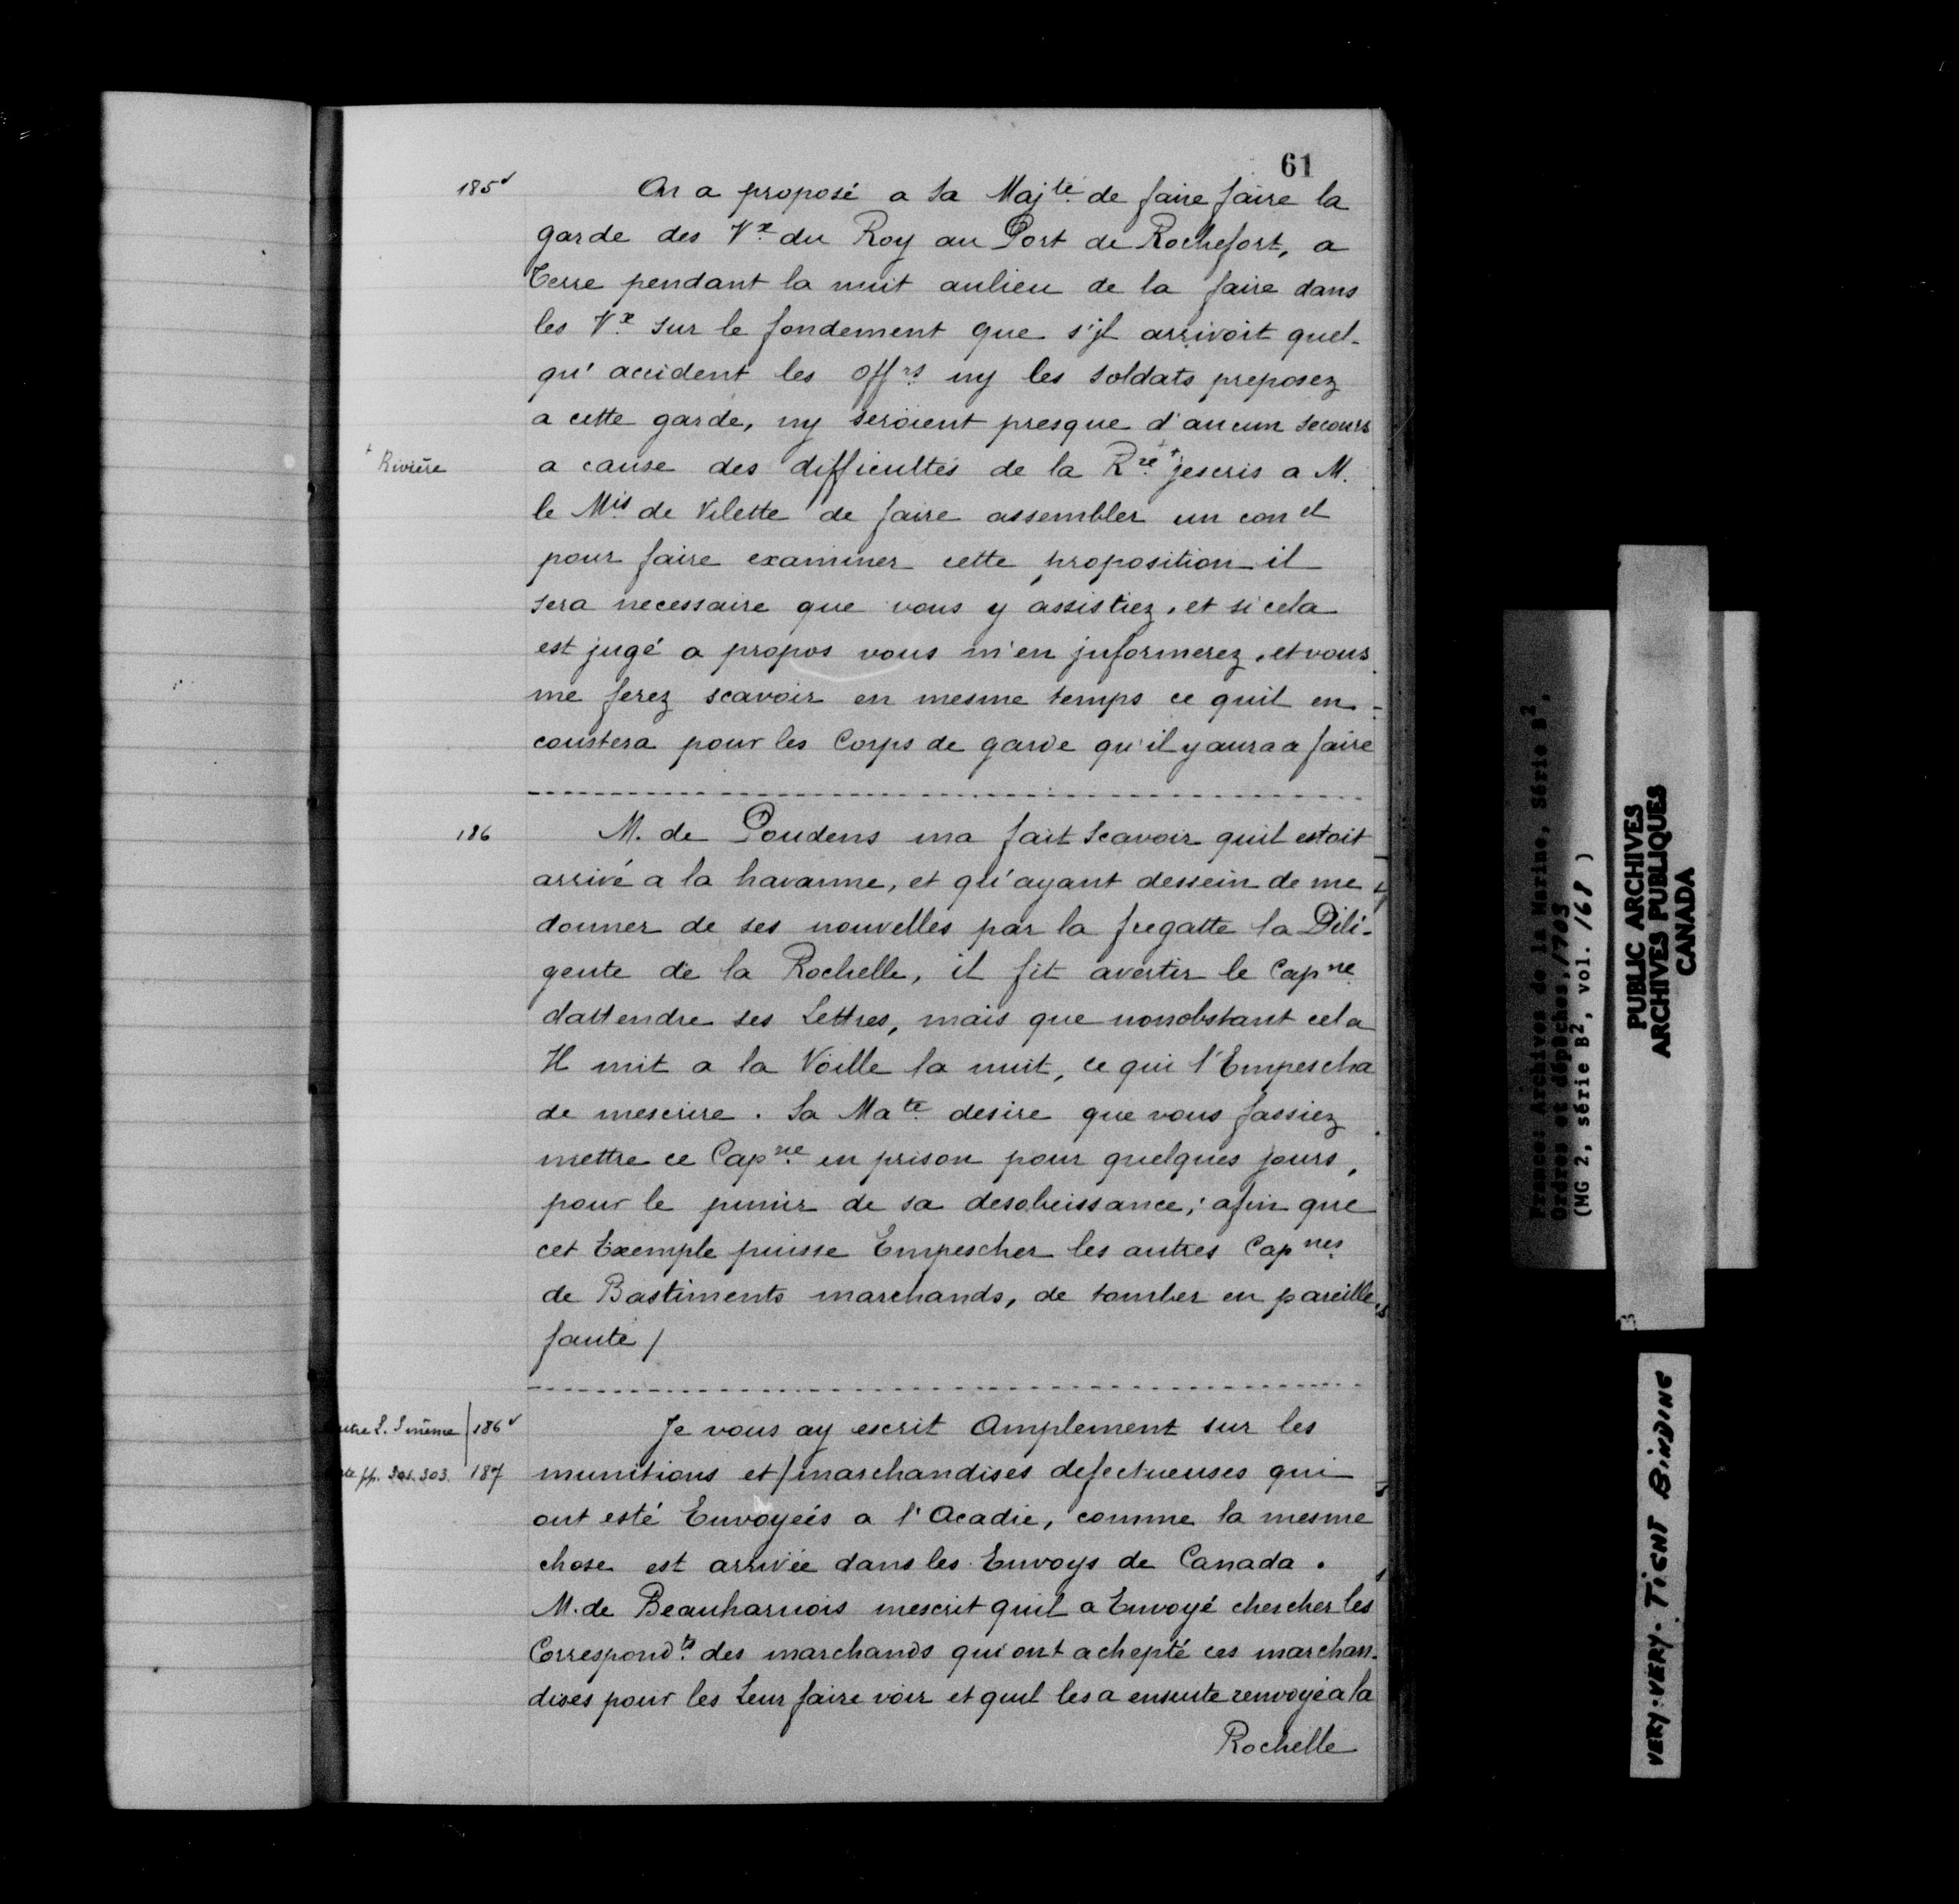 61
185v On a proposé a Sa Majté de faire faire la
garde des Vx du Roy au Port de Rochefort, a
Terre pendant la nuit aulieu de la faire dans
les Vx sur le fondement que s'jl arrivoit quel-
qu'accident les offrs ny les soldats preposez
a cette garde, ny seroient presque d'aucun secours
+ Rivière a cause des difficultés de la Rre + jescris a M.
le Mis de Vilette de faire assembler un conel
pour faire examiner cette proposition il
sera necessaire que vous y assistiez, et si cela
est jugé a propos vous m'en jnformerez, et vous
me ferez scavoir en mesme temps ce quil en
coustera pour les Corps de garde qu'il y aura a faire
186 M. de Poudens ma fait Scavoir quil estoit
arrivé a la havanne, et qu'ayant dessein de me
donner de ses nouvelles par la fregatte la Dili-
gente de la Rochelle, il fit avertir le Capne
dattendre ses Lettres, mais que nonobstant cela
Il mit a la Voille la nuit, ce qui l'Empescha
de mescrire. Sa Mate desire que vous fassiez
mettre ce Capne en prison pour quelques jours,
pour le punir de sa desobeissance; afin que
cet Exemple puisse Empescher les autres Capnes
de Bastiments marchands, de tomber en pareille
faute /
186v Je vous ay escrit Amplement sur les
pp. 301. 303. 187 munitions et / marchandises defectueuses qui
ont esté Envoyeés a l'Acadie, comme la mesme
chose est arrivée dans les Envoys de Canada.
M. de Beauharnois mescrit quil a Envoyé chercher les
Correspondts des marchands qui ont achepté ces marchan-
dises pour les Leur faire voir et quil les a ensuite renvoyé a la
Rochelle
France: Archives de la Marine, Série B2,
Ordres et dépêches, 1703
(MG 2, série B2, vol. 168)
PUBLIC ARCHIVES
ARCHIVES PUBLIQUES
CANADA
VERY-VERY-TIGHT BINDING